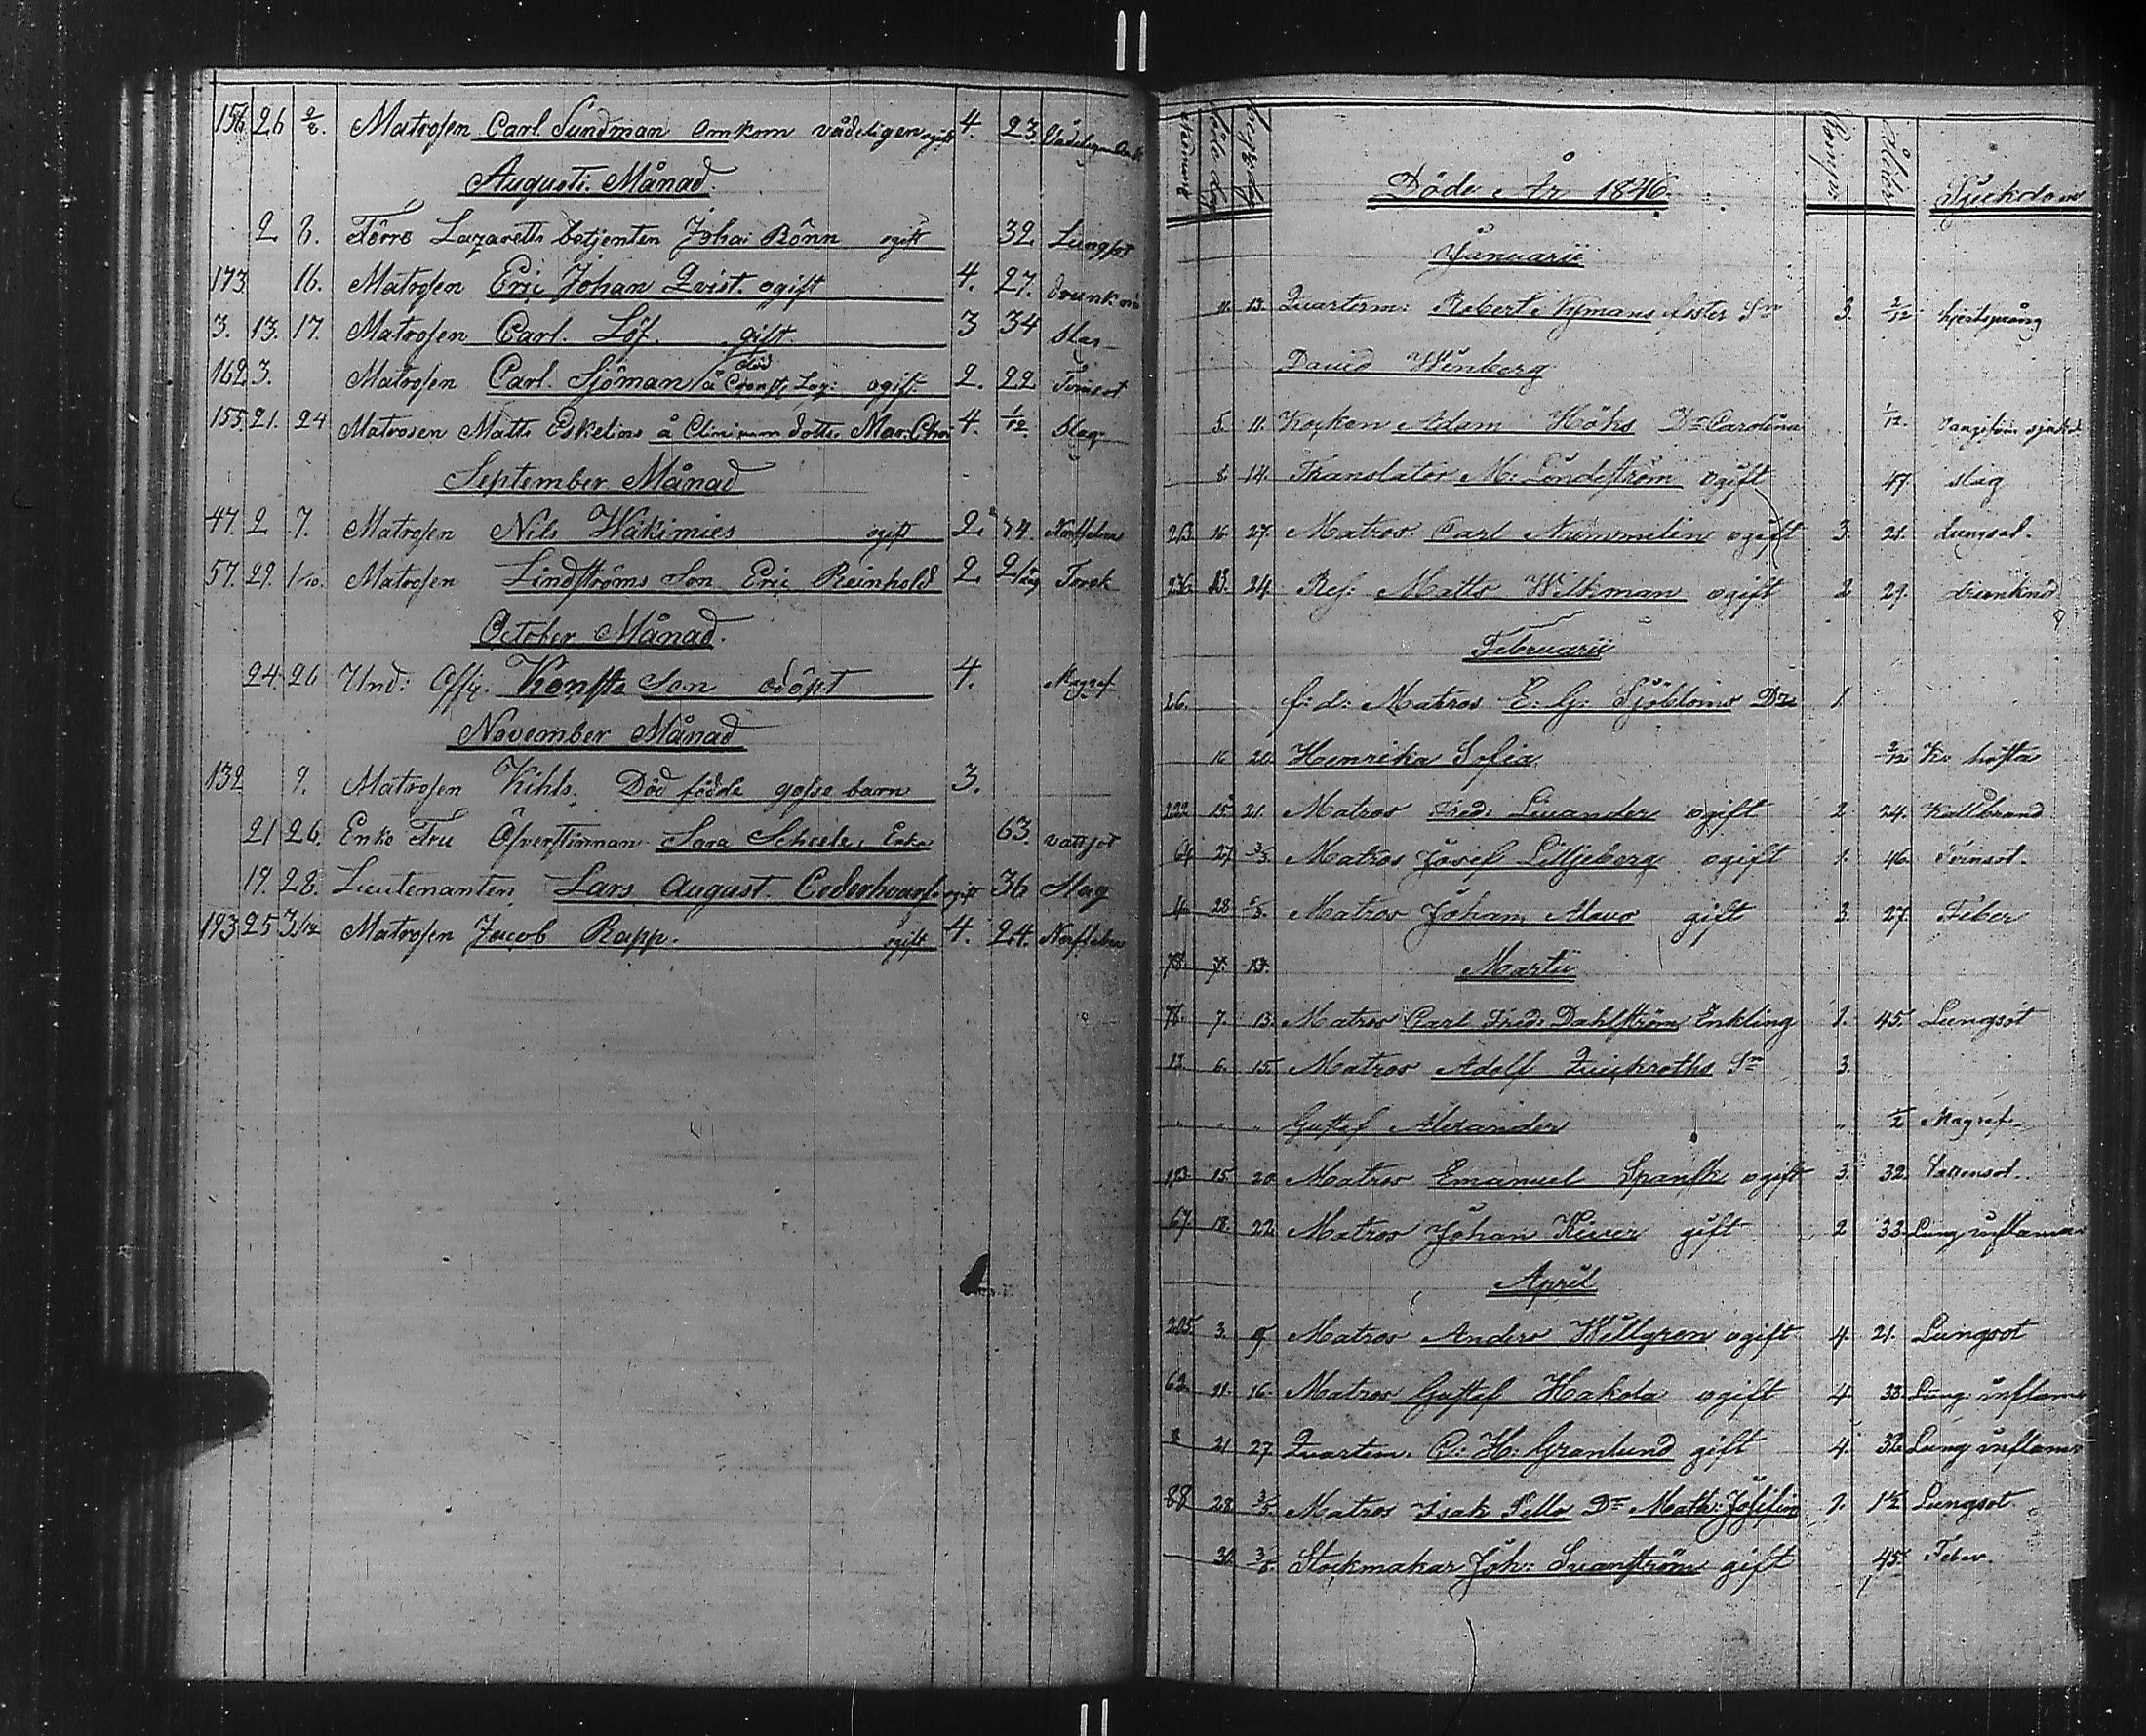 156 26 2/8. Matrosen Carl Sundman omkom vådeligen ogift 4. 23.
Augusti Månad.
2 8. Förre Lazaretts betjenten Johan Rönn ogift 32 Lungsot
173 16. Matrosen Eric Johan Qvist. ogift 4. 27.
3. 13. 17. Matrosen Carl. Löf. gift. 3 34 Slag
162 3. Matrosen Carl. Sjöman död å Cronst. Laz: ogift. 2. 22 Tvinsot
155. 21. 24 Matrosen Matts Eskelins å Clinicum dotter Mar: 4. 1/12. Slag
September Månad
47. 2 7. Matrosen Nils Wäkimies ogift 2 Nerffeber
57. 29. 1/10. Matrosen Lindströms Son Eric Reinhold 2 Torsk
October Månad.
24. 26 Und: Offic. Son odöpt 4. Magref
November Månad
132 9. Matrosen Kihls. Död födde gosse barn 3.
21 26. Enke Fru Öfverstinnan Sara Scheele, Enka 63. vattsot
19. 28. Lieutenanten Lars August. ogift 36 Slag
193 25 3/12 Matrosen Jacob Rapp. ogift 4. 24. Nerffeber
Döde År 1846.
Compa Ålder Sjukdom
Januarii
11. 13. Quarterm: Robert Nymans foster Sn 3. 2/12 hjertsprång
David Winberg
5. 11. Kocken Adam Höks Dr Carolina 1/12.
8. 14. Translator M: Lindström ogift 47 slag
213 16 27. Matros Carl Nummilin ogift 3. 21. Lungsot.
236 13. 24. Res: Matts Wilkman ogift 2 29. drunknd
Februarii
26. f: d: Matros E: G: Sjöbloms Dr 1.
16 20. Henrika Sofia 2/12 Kik hosta
222 15. 21. Matros Fred: Livander ogift 2 24. Kallbrand
64 27. 3/3. Matros Josef Liljeberg ogift 1. 46. Tvinsot.
4 28 5/3. Matros Johan Alavo gift 3. 27. Feber
78. 7. 13. Martii
78. 7. 13. Matros Carl Fred: Dahlström Enkling 1. 45. Lungsot
12. 6. 15. Matros Adolf Quickroths Sn 3.
" " " Gustef Alexander " 1/2 Magref
15 20 Matros Emanuel Spansk ogift 3. 32. Vattensot.
67. 18. 22. Matros Johan Kiurer gift 2 33. Lung inflamat
April
205. 3. 9. Matros Anders Willgren ogift 4. 21. Lungsot
62. 11. 16. Matros Gustef Hakola ogift 4. 33. Lung: inflam
21 27. Quarterm. C: H: Granlund gift 4. Lung inflam
88 28. 3/5. Matros Isak Pello Dr Math: Josefina 1. 1 1/2 Lungsot
30. 3/5. Stockmakar Joh: Svanström gift 45. Feber.